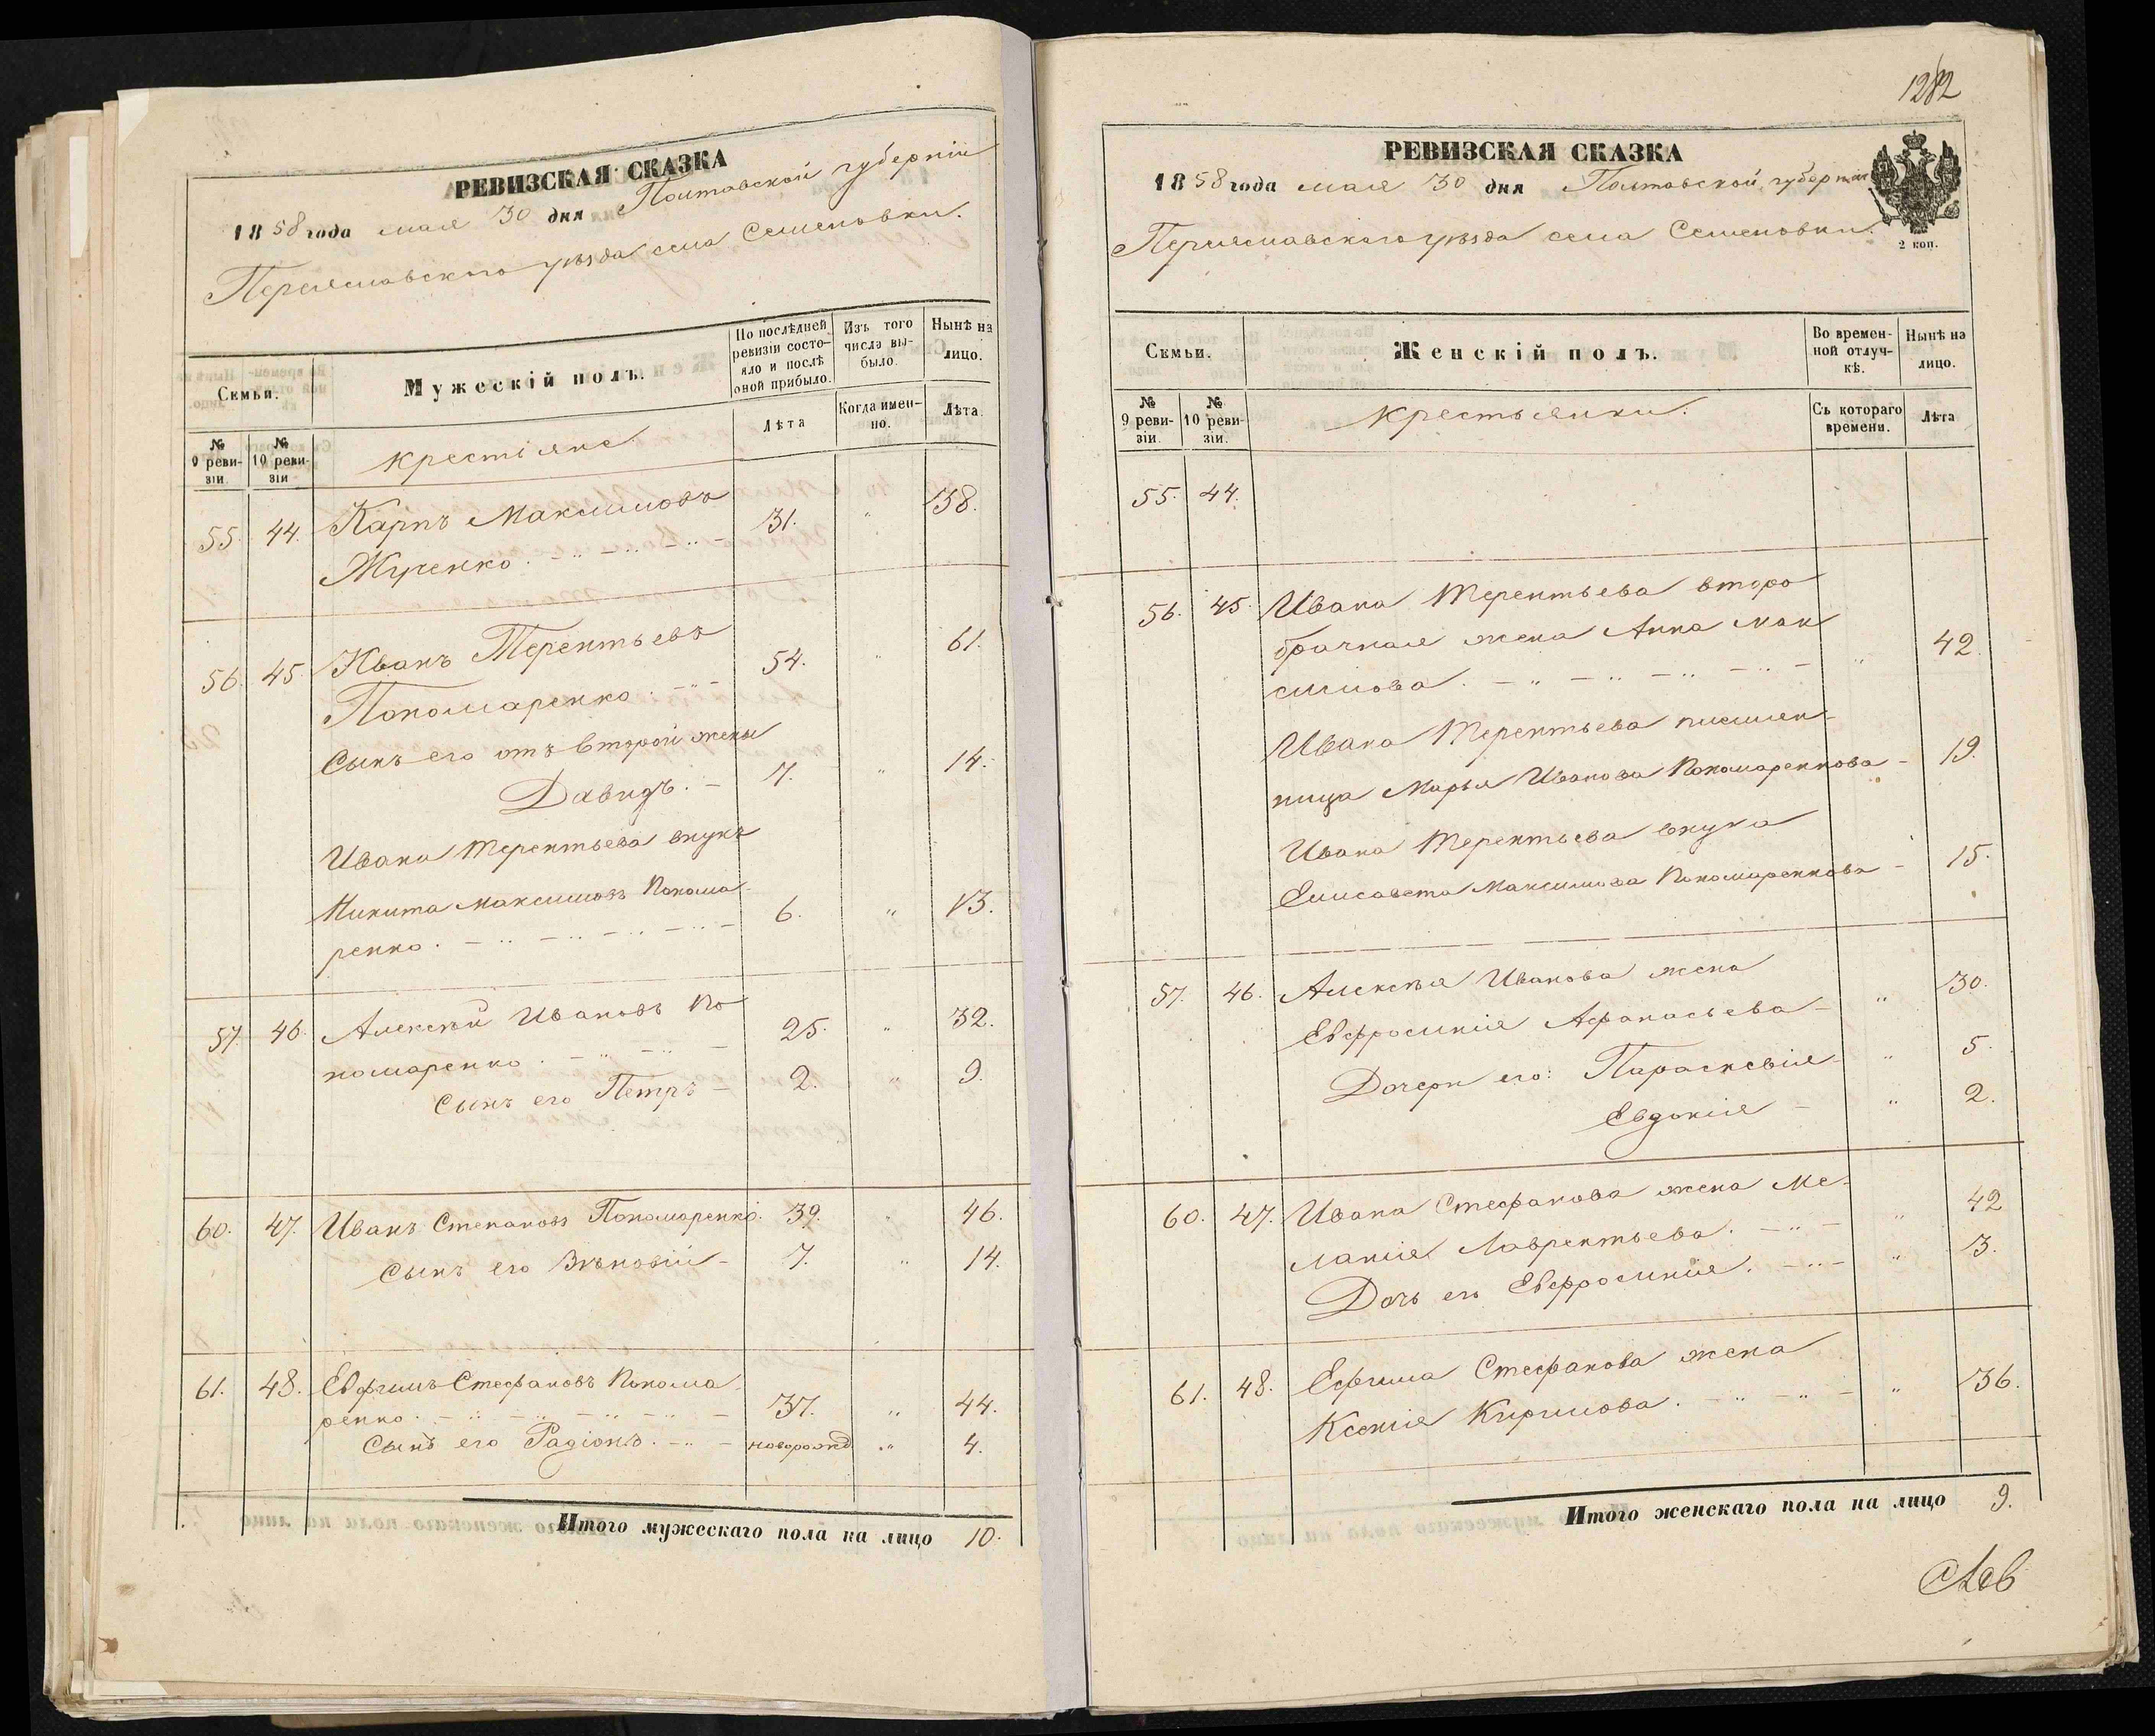 РЕВИЗСКАЯ СКАЗКА
1858 года мая 30 дня Полтавской губерніи
Переяславского уѣзда села Семеновки.
Семьи.
Мужескій полъ.
По послѣдней ревизіи состояло и послѣ оной прибыло.
Изъ того числа выбыло.
Нынѣ на лицо.
№ 9 ревизіи.
№ 10 ревизіи
крестіяне
Лѣта
Когда именно.
Лѣта.
55. 44. Карпъ Максимовъ
Журенко. 31. " 38.
56. 45 Иванъ Терентьевъ
Пономаренко. 54. " 61.
Сынъ его отъ второй жены
Давидъ. 7. " 14.
Ивана Терентьева внукъ
Никита Максимовъ Понома-
ренко. 6. " 13.
57. 46. Алексѣй Ивановъ По
номаренко. 25. " 32.
Сынъ его Петръ 2. " 9.
60. 47. Иванъ Степановъ Пономаренко. 39. " 46.
Сынъ его Зѣновій 7. " 14.
61. 48. Евфимъ Стефановъ Понома-
ренко. 37. " 44.
Сынъ его Радіонъ. новорожд " 4.
Итого мужескаго пола на лицо 10.
1282
РЕВИЗСКАЯ СКАЗКА
1858 года мая 30 дня Полтавской губерніи
Переяславского уѣзда села Семеновки.
2 коп.
Семьи.
Женскій полъ.
Во временной отлучкѣ.
Нынѣ на лицо.
№ 9 ревизіи.
№ 10 ревизіи.
крестьянки.
Съ котораго времени.
Лѣта
55. 44.
56. 45. Ивана Терентьева второ
брачная жена Анна Мак
симова. " 42.
Ивана Терентьева племен-
ница Марья Иванова Пономаренкова 19.
Ивана Терентьева внука
Елисавета Максимова Пономаренкова 15.
57. 46. Алексѣя Иванова жена
Евфросинія Афанасьева " 30.
Дочери его: Параскевія " 5.
Евдокія " 2.
60. 47. Ивана Стефанова жена Ме-
ланія Лаврентьева. " 42
Дочь его Евфросинія. " 3.
61. 48. Ефима Стефанова жена
Ксенія Кирилова. " 36.
Итого женскаго пола на лицо 9.